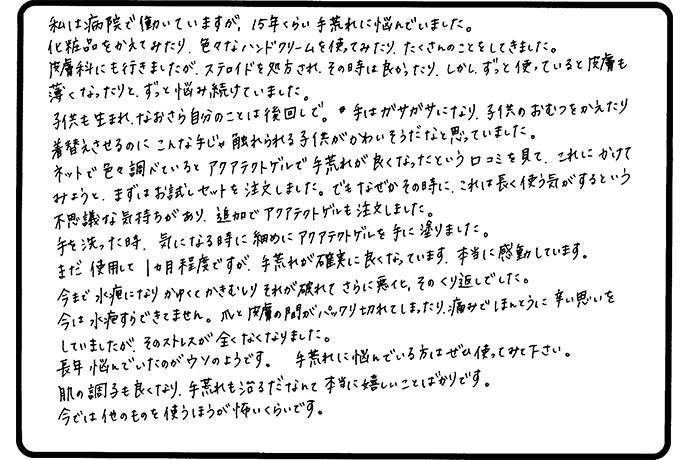 私は病院で働いていますが、15年くらい手荒れに悩んでいました。
化粧品をかえてみたり、色々なハンドクリームを使ってみたり、たくさんのことをしてきました。
皮膚科にも行きましたが、ステロイドを処方され、その時は良かったり、しかし、ずっと使っていると皮膚も
薄くなったりと、ずっと悩み続けていました。
子供も生まれ、なおさら自分のことは後回しで。手はガサガサになり、子供のおむつをかえたり
着替えさせるのに こんな手じゃ 触れられる子供がかわいそうだなと思っていました。
ネットで色々調べていると アクアテクトゲルで手荒れが良くなったという口コミを見て、これにかけて
みようと、まずはお試しセットを注文しました。でもなぜかその時に、これは長く使う気がするという
不思議な気持ちがあり、追加でアクアテクトゲルも注文しました。
手を洗った時、気になる時に細めにアクアテクトゲルを手に塗りました。
まだ使用して1ヵ月程度ですが、手荒れが確実に良くなっています。本当に感動しています。
今まで水疱になりかゆくてかきむしりそれが破れてさらに悪化、そのくり返しでした。
今は水疱すらできてません。爪と皮膚の間がパックリ切れてしまったり、痛みでほんとうに辛い思いを
していましたが、そのストレスが全くなくなりました。
長年悩んでいたのがウソのようです。 手荒れに悩んでいる方はぜひ使ってみて下さい。
肌の調子も良くなり、手荒れも治るだなんて本当に嬉しいことばかりです。
今では他のものを使うほうが怖いくらいです。